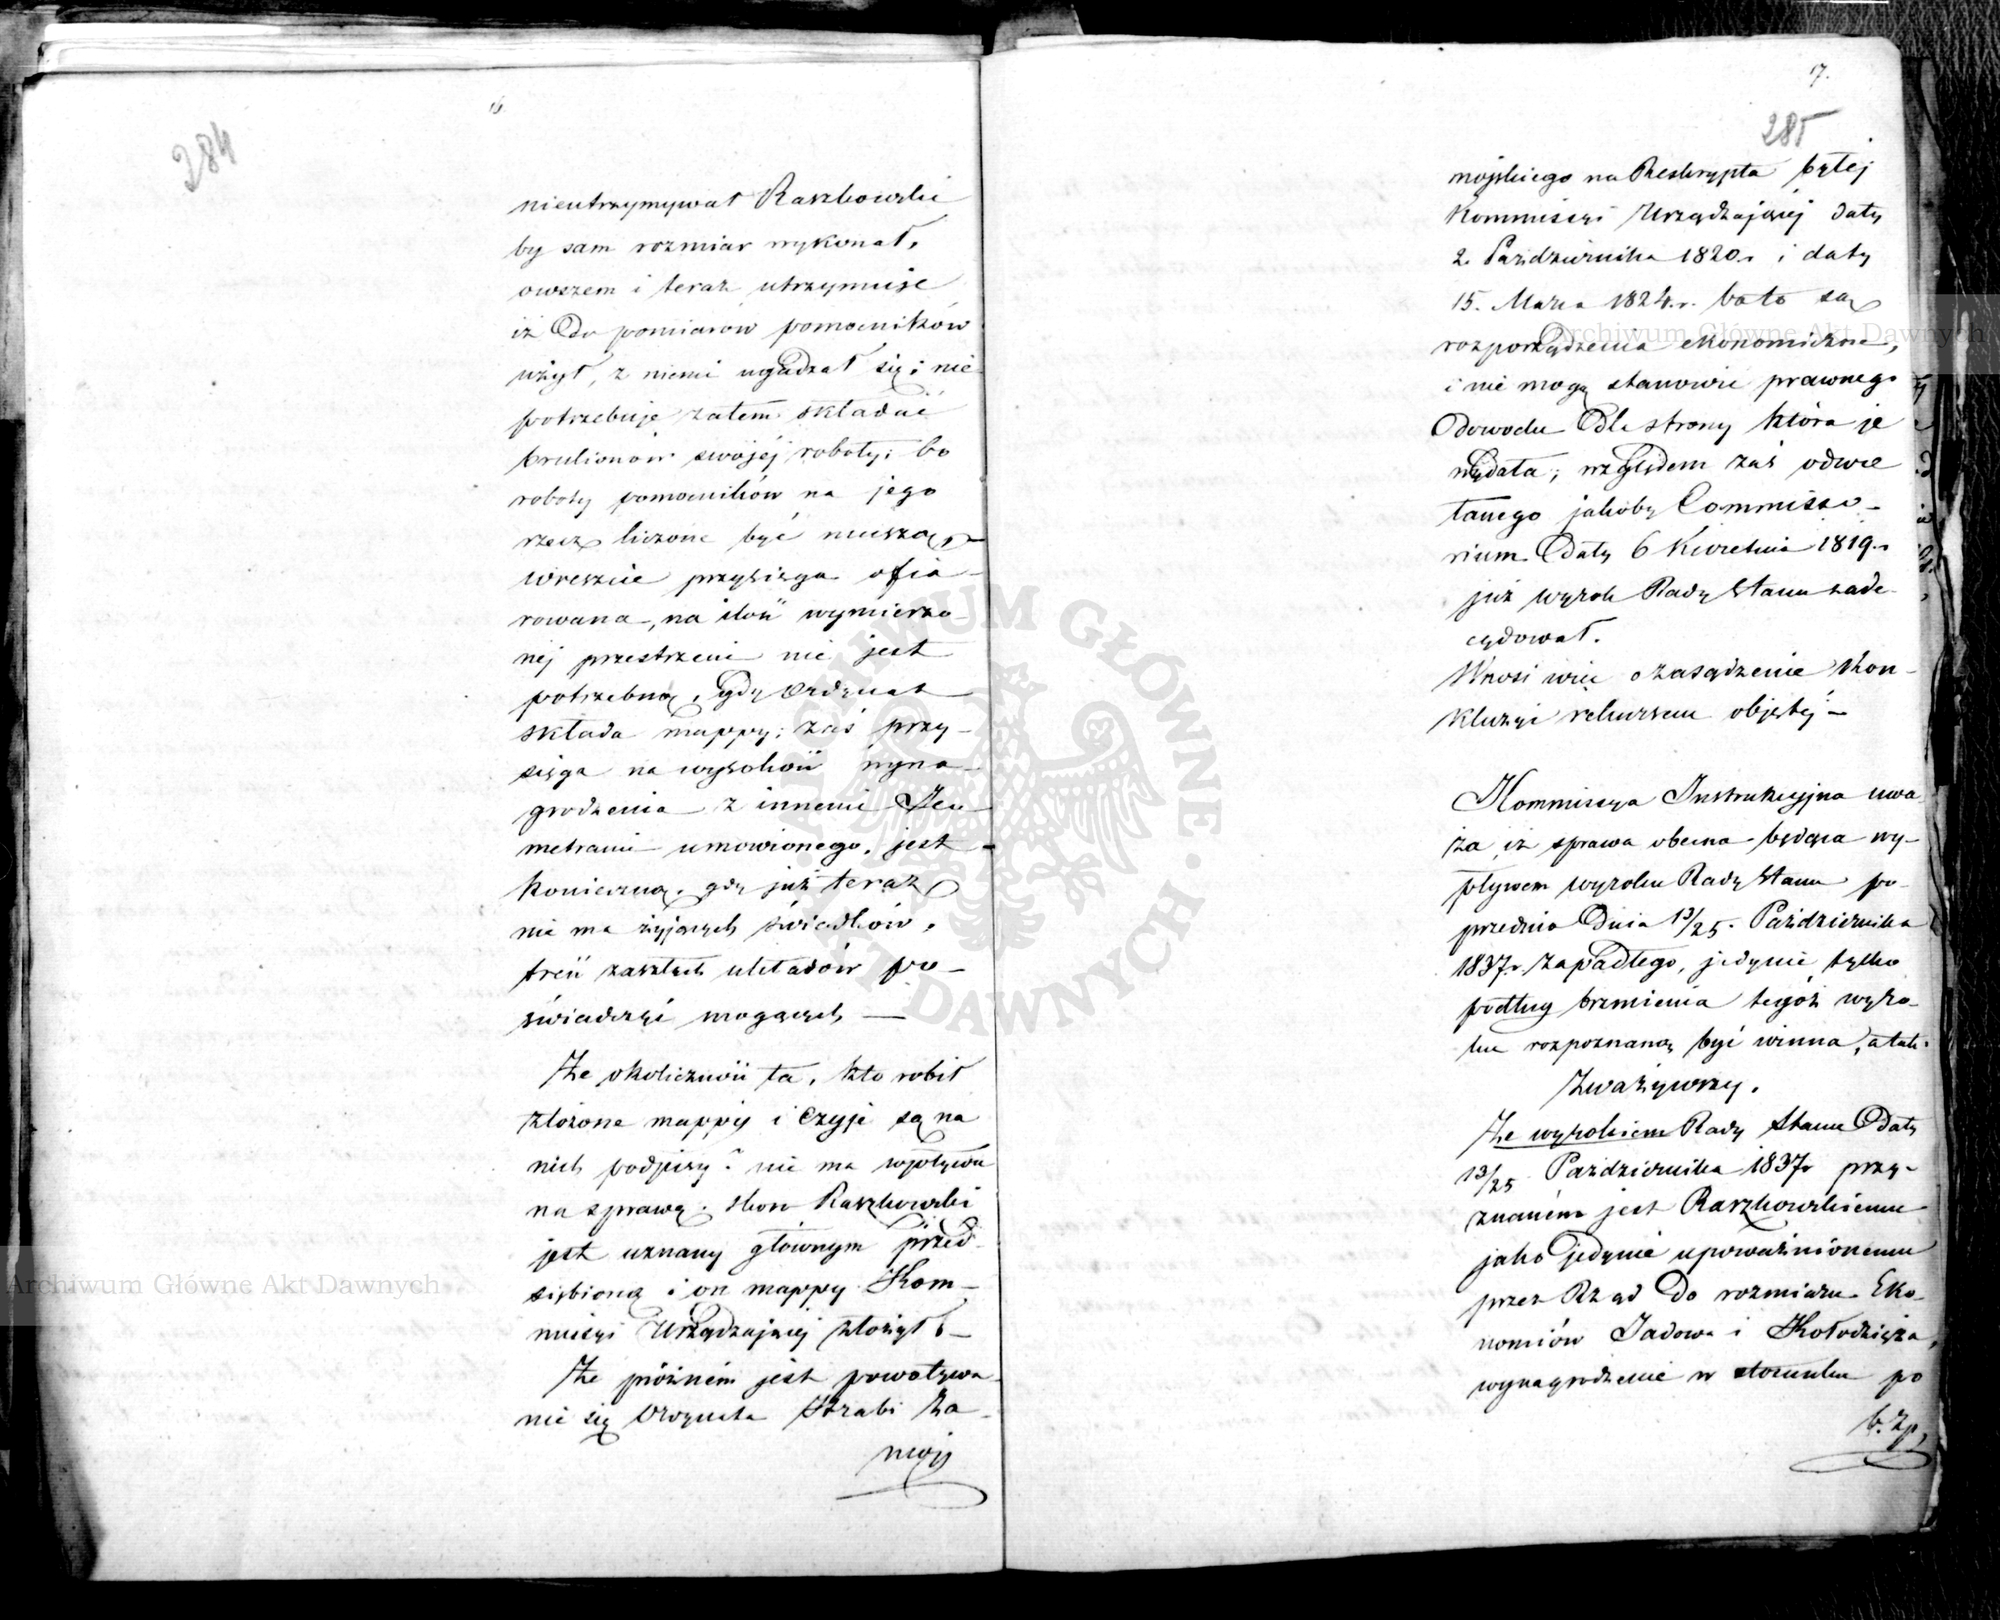 6
284
nieutrzymywał Raszkowski
by sam rozmiar wykonał,
owszem i teraz utrzymuje
iż do pomiarów pomocników
użył, z niemi ugadzał się i nie
potrzebuje zatem składać
brulionów swojéj roboty; bo
roboty pomocników na jego
rzecz liczone być muszą,
wreszcie przysięga ofia-
rowana, na ilość wymierzo-
nej przestrzeni nie jest
potrzebną, gdy Ordynat
składa mappy; zaś przy-
sięga na wysokość wyna-
grodzenia z innemi Jeo-
metrami umowionego, jest
konieczną, gdy już teraz
nie ma żyjących świadków,
treść zaszłych układów po-
świadczyć mogących —
Że okoliczność ta, kto robił
złożone mappy i czyje są na
nich podpisy? nie ma wpływu
na sprawę, skoro Raszkowski
jest uznany głównym przed-
siębiorcą i on mappy Kom-
missyi Urządzającej złożył —
Że próżném jest powoływa-
nie się Ordynata Hrabi Za-
mojs
7.
285
mojskiego na Reskrypta byłej
Kommissyi Urządzającej daty
2. Października 1820. i daty
15. Marca 1824.r. bo to są
rozporządzenia ekonomiczne,
i nie mogą stanowić prawnego
dowodu dla strony która je
wydała; względem zaś odwo
łanego jakoby Commisso-
rium daty 6 Kwietnia 1819.
już wyrok Rady Stanu zade-
cydował.
Wnosi więc o zasądzenie kon-
kluzyi rekursem objętéj —
Kommissya Instrukcyjna uwa
ża iż sprawa obecna będąca wy-
pływem wyroku Rady Stanu po-
przednio dnia 13/25. Października
1837.r. zapadłego, jedynie tylko
podług brzmienia tegóż wyro-
ku rozpoznaną być winna, a tak.
Zważywszy.
Że wyrokiem Rady Stanu daty
13/25 Października 1837r przy-
znaném jest Raszkowskiemu
jako jedynie upoważnionemu
przez Rząd do rozmiaru Eko-
nomiów Jadowa i Kołodziąża,
wynagrodzenie w stosunku po
6. Zp,
Archiwum Główne Akt Dawnych
Archiwum Główne Akt Dawnych
ARCHIWUM GŁÓWNE · AKT DAWNYCH ·